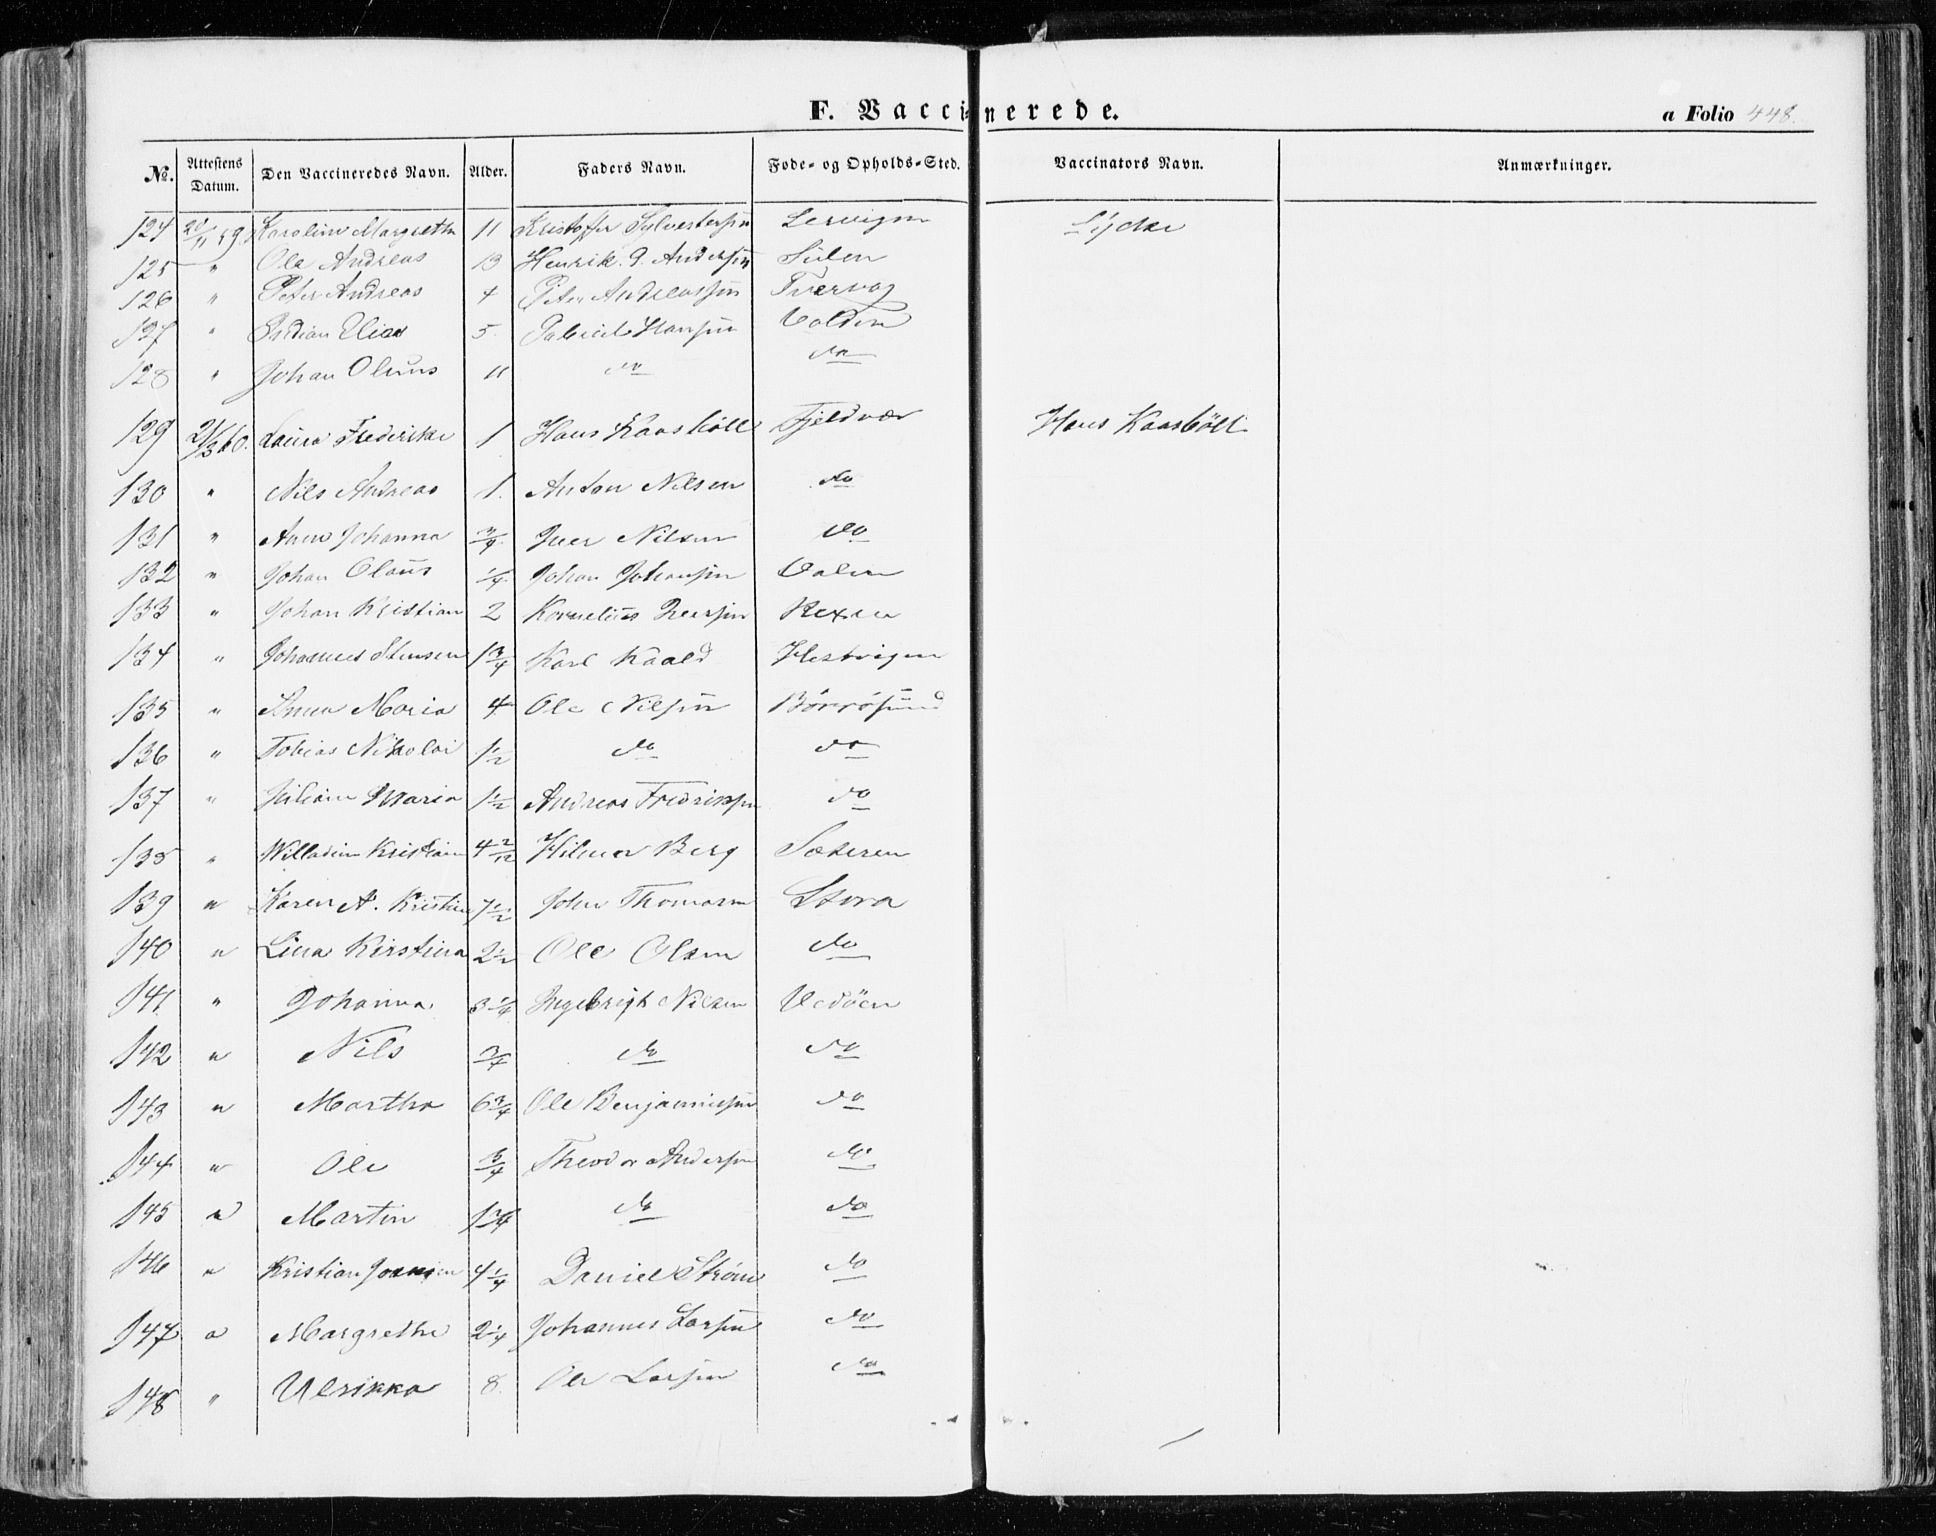 F. Vaccinerede.
a Folio 448.
No. Attestens Datum. Den Vaccineredes Navn. Alder. Faders Navn. Føde- og Opholds-Sted. Vaccinators Navn. Anmærkninger.
124 21/11 59 Karoline Margrethe 11 Kristoffer Sylvestersen Lervigen Lycke
125 " Ole Andreas 13 Henrik P. Andersen Sulen
126 " Peter Andreas 4 Peter Andreassen Tvervag
127 " Elias 5. Hansen Valden
128 " Johan Olaus 11 do do
129 21/3 60. Laura Frederikke 1 Hans Kaasbøll Fjeldvær Hans Kaasbøll
130 " Nils Andreas 1. Anton Nilsen do
131 " Anne Johanna 3/4 Iver Nilsen do
132 " Johan Olaus 1/4 Johan Johansen Valen
133 " Johan Kristian 2 Kornelius Iversen
134 " Johannes Stensen 1 3/4 Karl Kaald Hestvigen
135 " Anna Maria 4 Ole Nilsen Børrøsund
136 " Tobias Nikolai 1 1/2 do do
137 " Juliane Maria 1 1/2 Andreas Fredriksen do
138 " Kristian 4 2/12 Hilmar Berg Sæteren
139 " Karen A. Kristine 7 1/2 John Thomasen Storø
140 " Lina Kirstina 2 1/2 Ole Olsen do
141 " Johanna 3 1/4 Ingebrigt Nilsen Vedöen
142 " Nils 3/4 do do
143 " Martha 6 3/4 Ole Benjaminsen do
144 " Ole 3/4 Theodor Andersen do
145 " Martin 1 3/4 do do
146 " Kristian 4 1/4 Daniel Strøm do
147 " Margrethe 2 1/4 Johannes Larsen do
148 " Ulrikka 8. Ole Larsen do